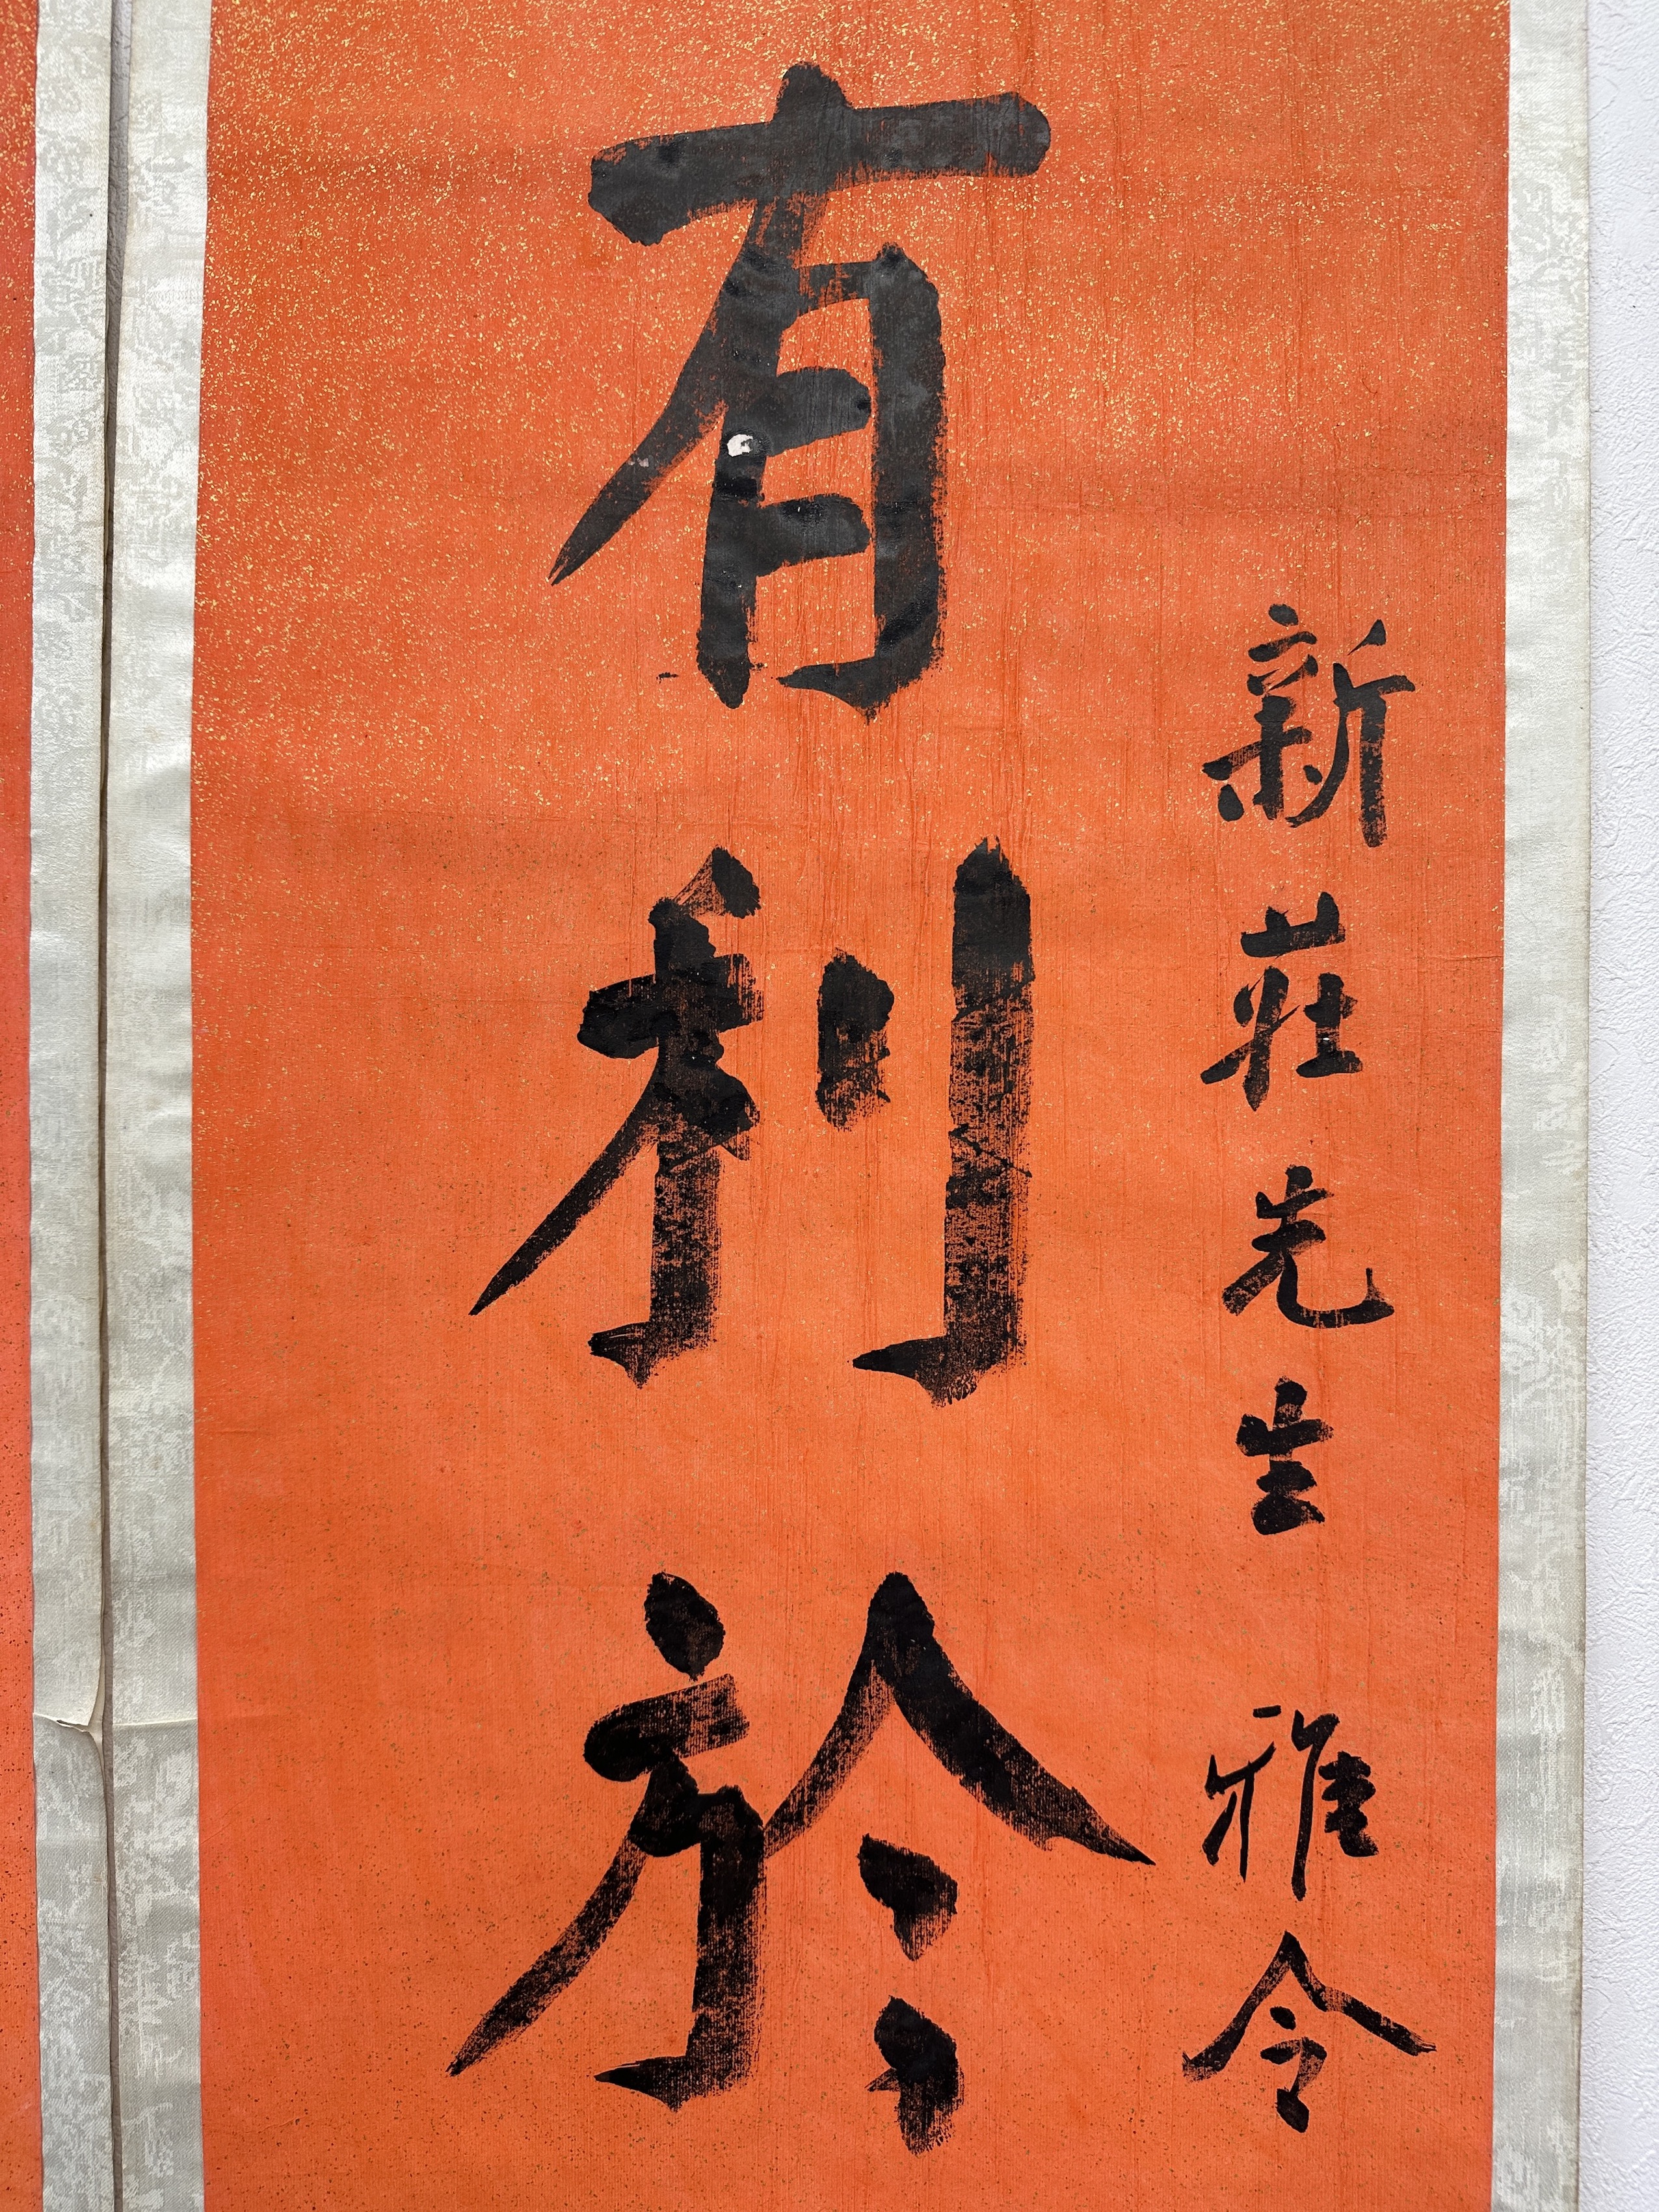 新莊先生雅令
有利於